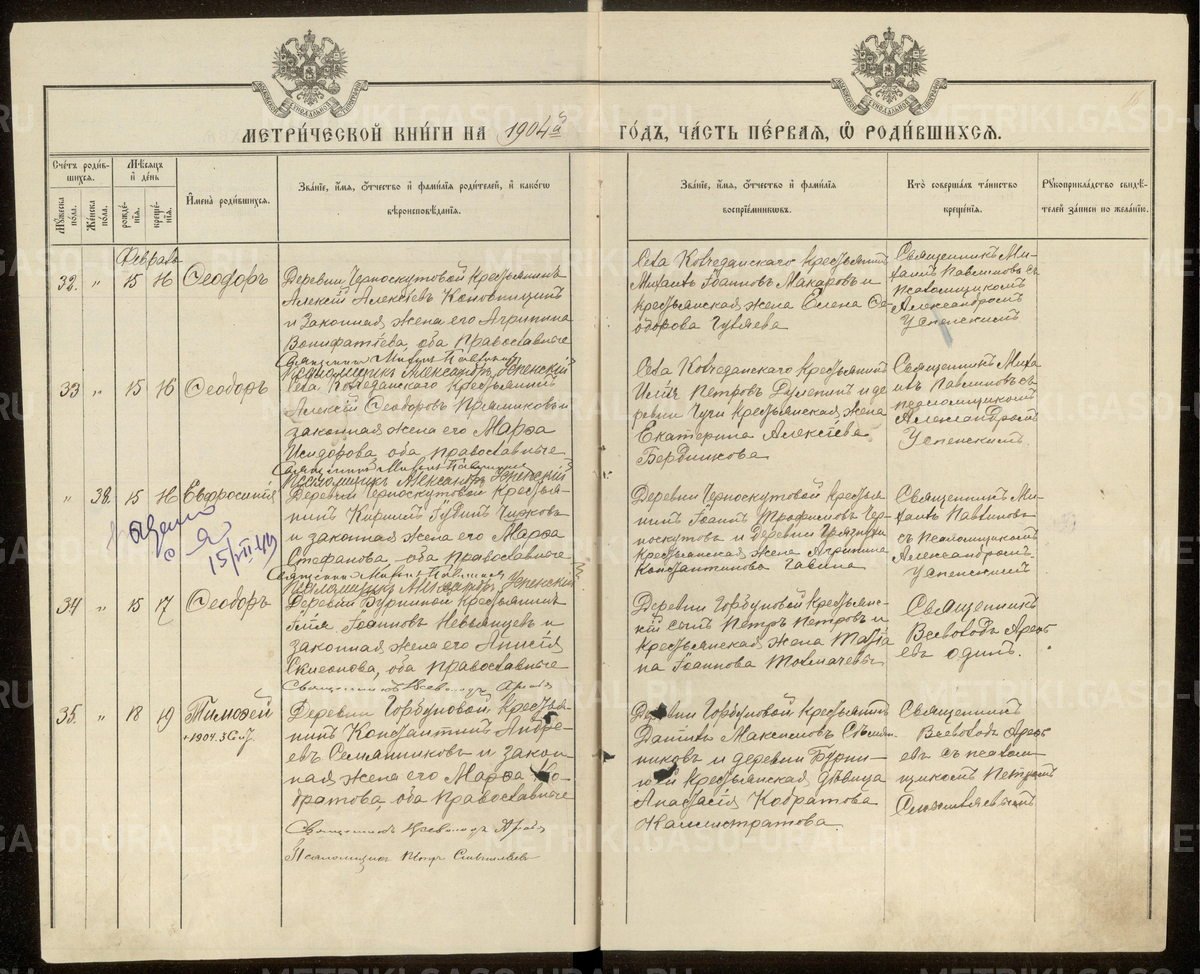 МЕТРИ́ЧЕСКОЙ КНИ́ГИ НА 1904й
ГО́ДЪ, ЧА́СТЬ ПЕ́РВАЯ, Ѡ РОДИ́ВШИХСЯ.
Сче́тъ роди́вшихся.
Му́жеска по́ла.
Же́нска по́ла.
Мѣ́сяцъ и́ день
рожде́нїя.
креще́нїя.
И҆мена̀ роди́вшихся.
Зва́нїе, и҆́мя, ѻ҆́тчество и҆ фами́лїя роди́телей, и҆ како́гѡ
вѣроисповѣ́данїя.
Зва́нїе, и҆́мя, ѻ҆́тчество и҆ фами́лїя
воспрїе́мниковъ.
Кто̀ соверша́лъ та́инство
креще́нїя.
Рꙋкоприкла́дство свидѣ́-
телей за́писи по жела́нїю.
Февраль
32. " 15 16 Ѳеодоръ
Деревни Черноскутовой крестьянинъ
Алексій Алексѣевъ Коновницинъ
и законная жена его Агрипина
Вонифатіева, оба православные
Священникъ Михаилъ Павлиновъ
Псаломщикъ Александръ Успенскій
Села Колчеданскаго крестьянинъ
Михаилъ Іоанновъ Макаровъ и
крестьянская жена Елена Ѳе-
одорова Гуляева
Священникъ Ми-
хаилъ Павлиновъ съ
псаломщикомъ
Александромъ
Успенскимъ
33 " 15 16 Ѳеодоръ
Села Колчеданскаго крестьянинъ
Алексій Ѳеодоровъ Прямиковъ и
законная жена его Марѳа
Исидорова, оба православные
Священникъ Михаилъ Павлиновъ
Псаломщикъ Александръ Успенскій
Села Колчеданскаго крестьянинъ
Петровъ и де-
ревни крестьянская жена
Екатерина Алексѣева
Бердникова
Священникъ Миха
илъ Павлиновъ съ
псаломщикомъ
Александромъ
Успенскимъ.
" 38. 15 16 Евфросинія
15/VII 49
Деревни Черноскутовой крестья-
нинъ Кириллъ Чижовъ
и законная жена его Марѳа
Стефанова, оба православные
Священникъ Михаилъ Павлиновъ
Псаломщикъ Александръ Успенскій
Деревни Черноскутовой крестья
нинъ Іоаннъ Трофимовъ Чер-
носкутовъ и деревни
крестьянская жена Агрипина
Константинова
Священникъ Ми-
хаилъ Павлиновъ
съ псаломщикомъ
Александромъ
Успенскимъ
34 " 15 17 Ѳеодоръ
Деревни Бурниной крестьянинъ
Илія Іоанновъ Невьянцевъ и
законная жена его Анисія
Симеонова, оба православные
Священникъ Всеволодъ
Деревни Горбуновой крестьянс-
кій сынъ Петръ Петровъ и
крестьянская жена Татіа
на Іоаннова Толмачевы
Священникъ
Всеволодъ
одинъ.
35. " 18 19 Тимоѳей
Деревни Горбуновой крестья-
нинъ Константинъ Андре-
евъ Семянниковъ и закон-
ная жена его Марѳа Ко-
дратова, оба православные
Священникъ Всеволодъ
Псаломщикъ Петръ
Деревни Горбуновой крестьянинъ
Даніилъ Максимовъ Семян-
никовъ и деревни Бурни-
ной крестьянская дѣвица
Анастасія Кодратова
Каллистратова.
Священникъ
Всеволодъ
съ псалом-
щикомъ Петромъ
METRIKI.GASO-URAL.RU